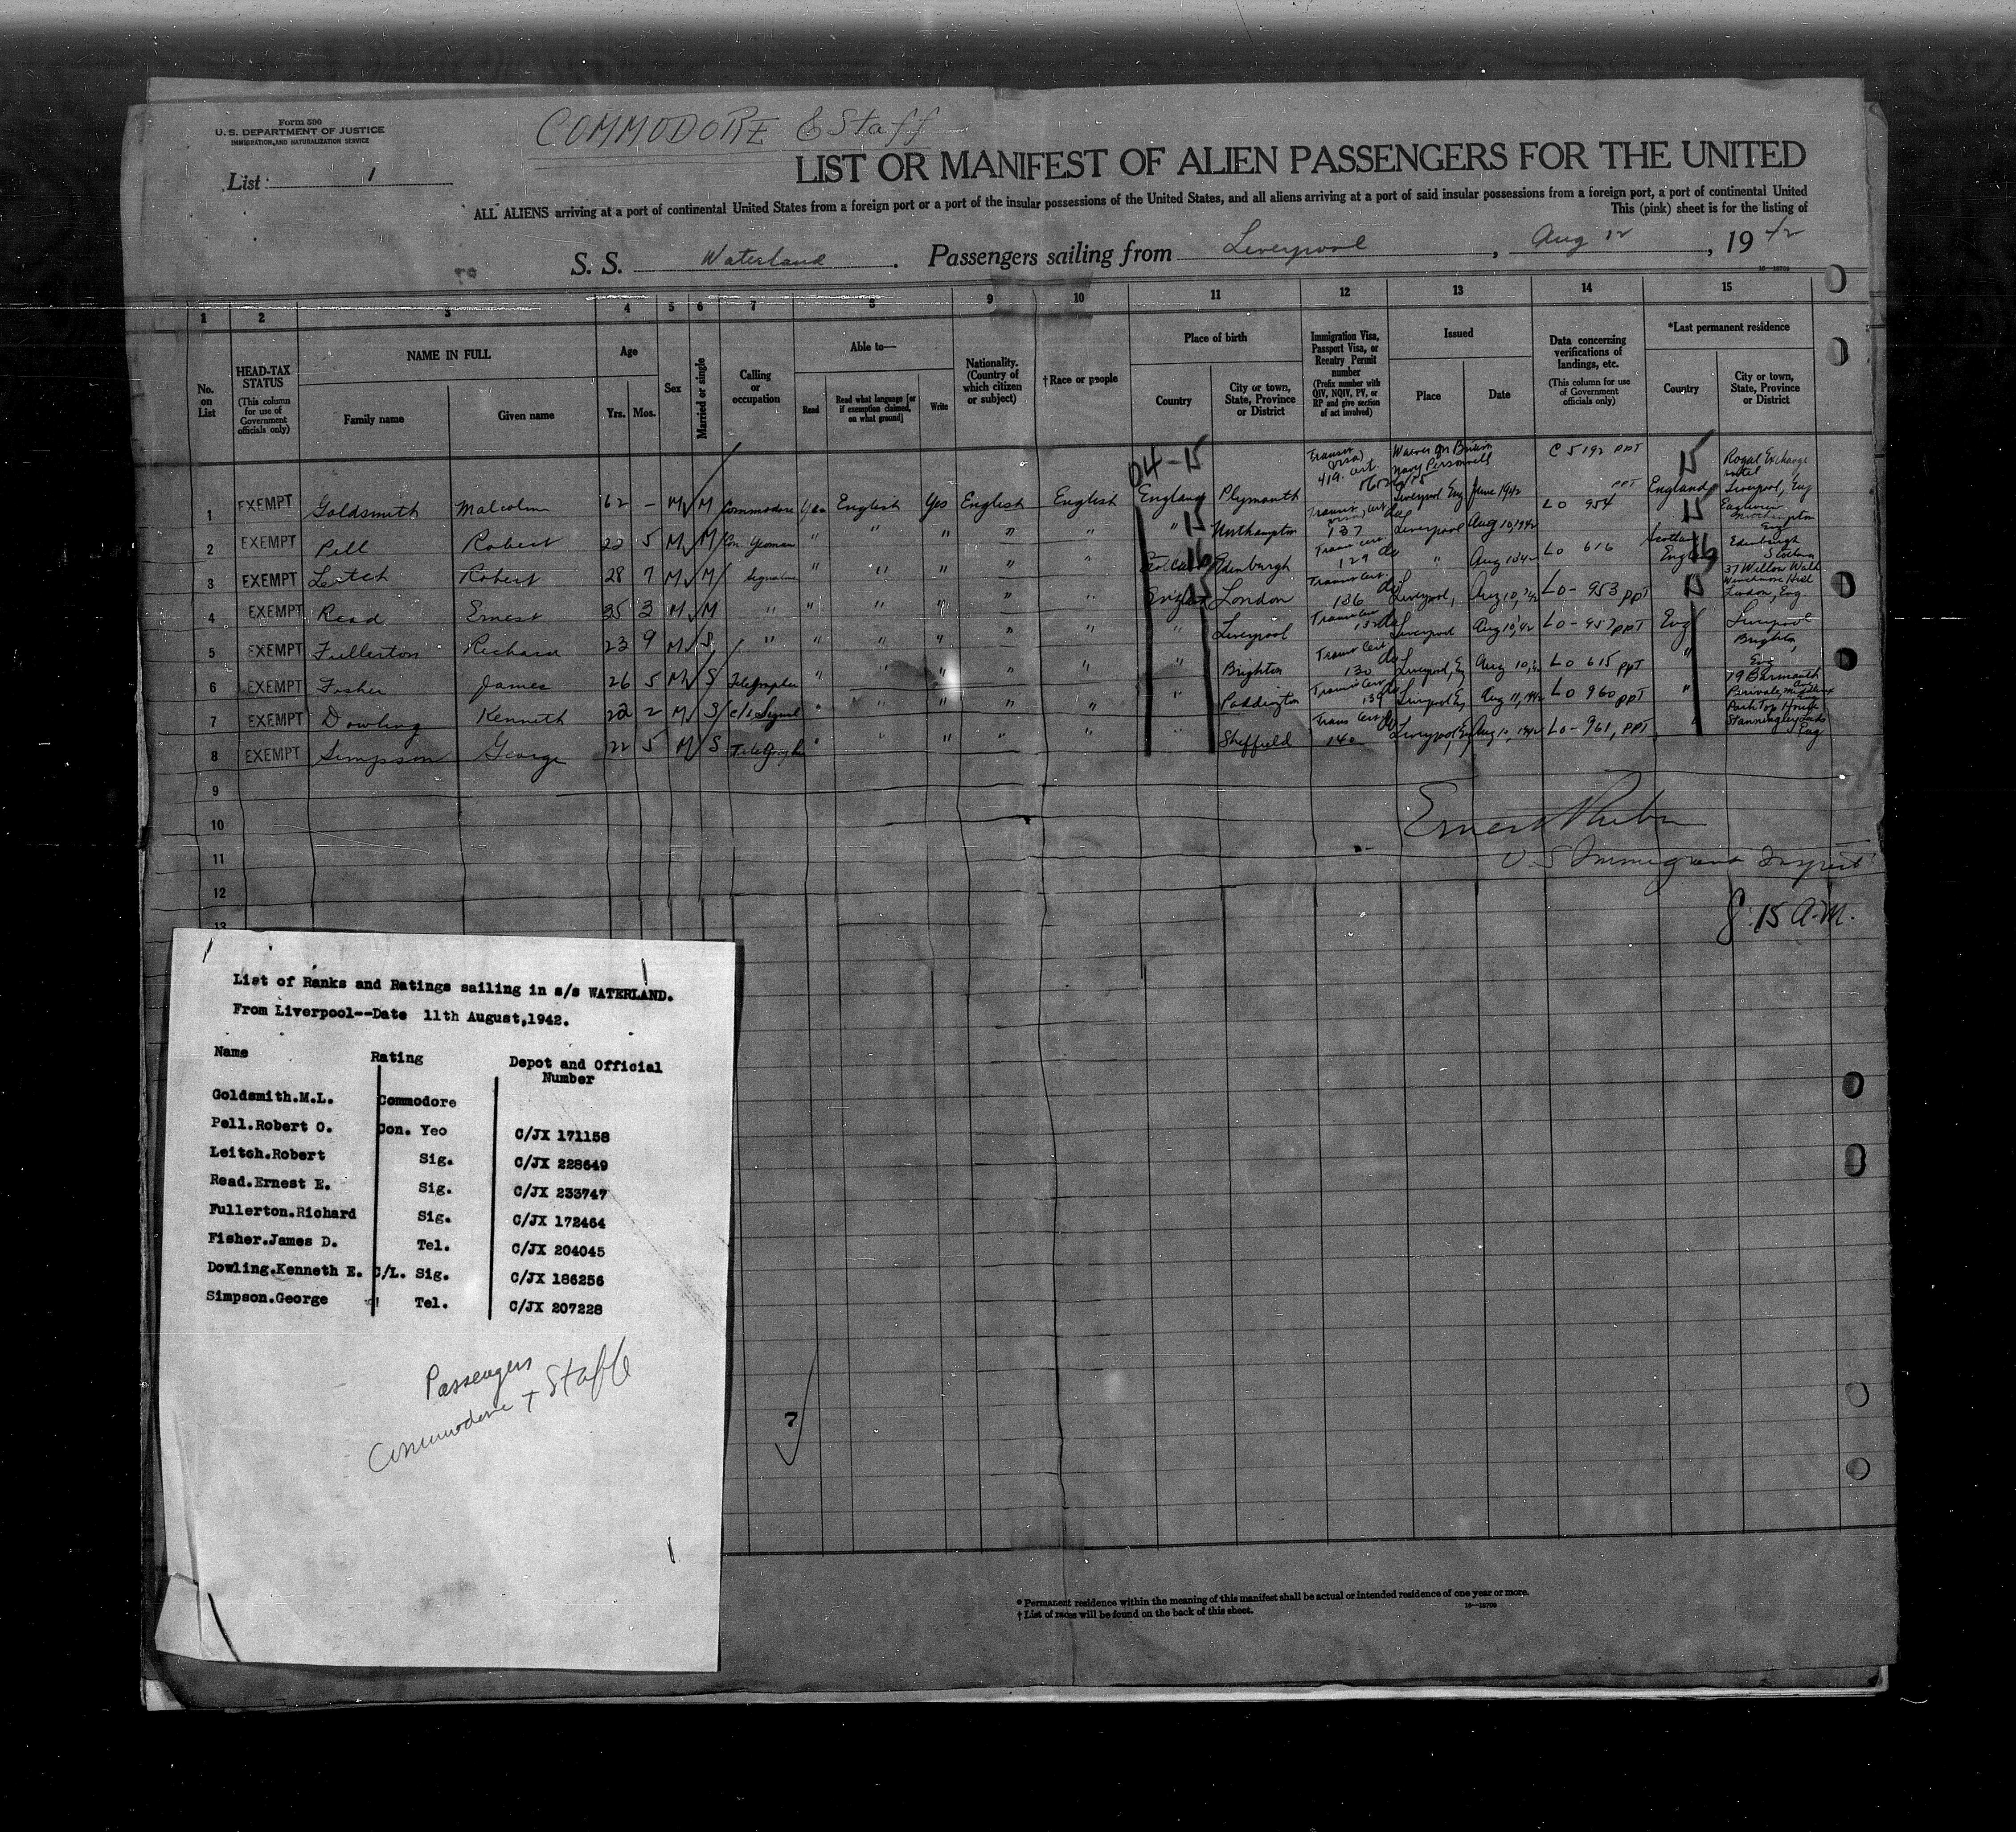 Form 500
U. S. DEPARTMENT OF JUSTICE
IMMIGRATION AND NATURALIZATION SERVICE
COMMODORE & Staff
List 1
LIST OR MANIFEST OF ALIEN PASSENGERS FOR THE UNITED
ALL ALIENS arriving at a port of continental United States from a foreign port or a port of the insular possessions of the United States, and all aliens arriving at a port of said insular possessions from a foreign port, a port of continental United
This (pink) sheet is for the listing of
S. S. Waterland. Passengers sailing from Liverpool, Aug 12, 1942
1 2 3 4 5 6 7 8 9 10 11 12 13 14 15
No. on List
HEAD-TAX STATUS (This column for use of Government officials only)
NAME IN FULL Family name Given name
Age Yrs. Mos.
Sex
Married or single
Calling or occupation
Able to— Read Read what language [or if exemption claimed, on what ground] Write
Nationality. (Country of which citizen or subject)
†Race or people
Place of birth Country City or town, State, Province or District
Immigration Visa, Passport Visa, or Reentry Permit number (Prefix number with QIV, NQIV, PV, or RP and give section of act involved)
Issued Place Date
Data concerning verifications of landings, etc. (This column for use of Government officials only)
*Last permanent residence Country City or town, State, Province or District
04-15 Transit visa 419 cert. Waiver on British Navy Personnel C 5192 PPT 15 Royal Exchange Hotel
1 EXEMPT Goldsmith Malcolm 62 – M M Commodore Yes English Yes English English England Plymouth Liverpool Eng June 1942 England Liverpool, Eng
2 EXEMPT Pell Robert 22 5 M M Con. Yeoman " " " " " " 15 Northampton 137 Liverpool Aug 10, 1942 LO 954 PPT 15 Eng
3 EXEMPT Leitch Robert 28 7 M M Signalman " " " " " Scotland 16 Edinburgh Transit Cert. 129 " Aug 1942 LO 616 Scotland 16 Edinburgh Scotland
4 EXEMPT Read Ernest 35 3 M M " " " " " " England 15 London Transit Cert. 136 Liverpool, Aug 10, '42 LO- 953 PPT 15 37 Willow Walk Winchmore Hill London, Eng.
5 EXEMPT Fullerton Richard 23 9 M S " " " " " " " Liverpool Transit Cert Liverpool Aug 10, '42 LO- 957 PPT Eng Liverpool
6 EXEMPT Fisher James 26 5 M S Telegrapher " " " " " " Brighton Transit Cert. 130 Liverpool, Eng Aug 10, 42 LO 615 PPT " Brighton, Eng
7 EXEMPT Dowling Kenneth 22 2 M S C/L Signal " " " " " " Paddington Transit Cert 139 Liverpool Eng Aug 11, 1942 LO 960 PPT " 79 Barmouth Ave Perivale, Middlesex
8 EXEMPT Simpson George 22 5 M S Telegrapher " " " " " " Sheffield Trans Cert 140 Liverpool, Eng Aug 10, 1942 LO-961, PPT " Park Top House Stanningley Leeds Eng
9
10
11
12
13
Ernest
U S Immigrant Inspect
8:15 A.M.
List of Ranks and Ratings sailing in s/s WATERLAND.
From Liverpool--Date 11th August,1942.
Name Rating Depot and Official Number
Goldsmith.M.L. Commodore
Pell.Robert O. Con. Yeo C/JX 171158
Leitch.Robert Sig. C/JX 228649
Read.Ernest E. Sig. C/JX 233747
Fullerton.Richard Sig. C/JX 172464
Fisher.James D. Tel. C/JX 204045
Dowling.Kenneth E. C/L. Sig. C/JX 186256
Simpson.George Tel. C/JX 207228
Passengers
Commodore + Staff
7
* Permanent residence within the meaning of this manifest shall be actual or intended residence of one year or more.
† List of races will be found on the back of this sheet.